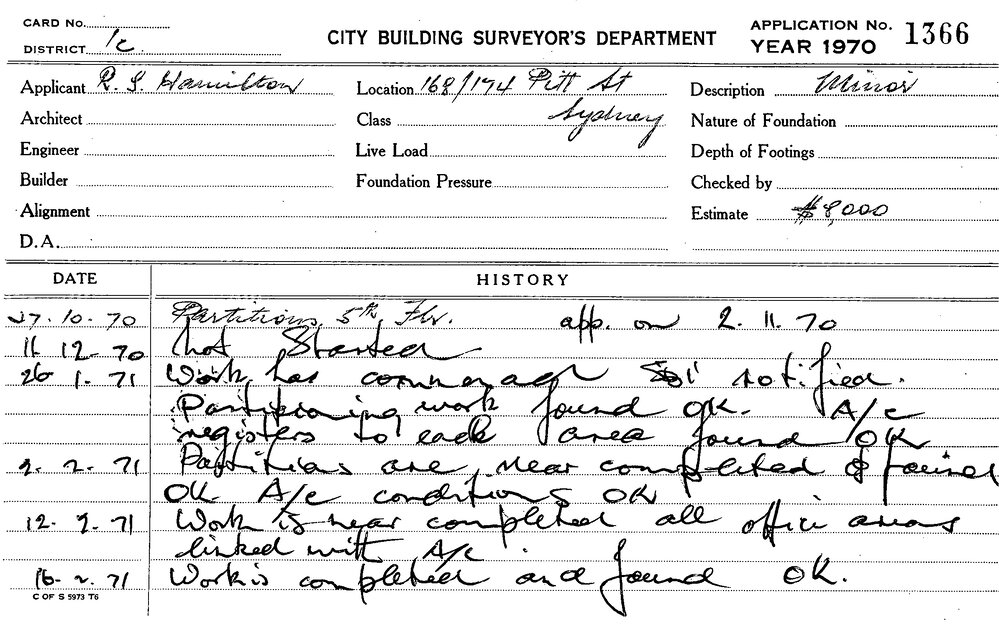 CARD No.
DISTRICT 1c
CITY BUILDING SURVEYOR'S DEPARTMENT
APPLICATION No. 1366
YEAR 1970
Applicant R. S. Hamilton
Location 168/174 Pitt St
Description Minor
Architect
Class Sydney
Nature of Foundation
Engineer
Live Load
Depth of Footings
Builder
Foundation Pressure
Checked by
Alignment
Estimate $8,000
D.A.
DATE HISTORY
27.10.70 Partitions, 5th Flr. app. on 2.11.70
11 12-70 not Started
26 1.71 Work has commenced notified.
Partitioning work found OK. A/c
registers to each area found OK
2.2.71 Partitions are near completed & found
OK. A/c conditions OK
12.2.71 Work is near completed all office areas
linked with A/c.
16-2.71 Work is completed and found OK.
C OF S 5973 T6